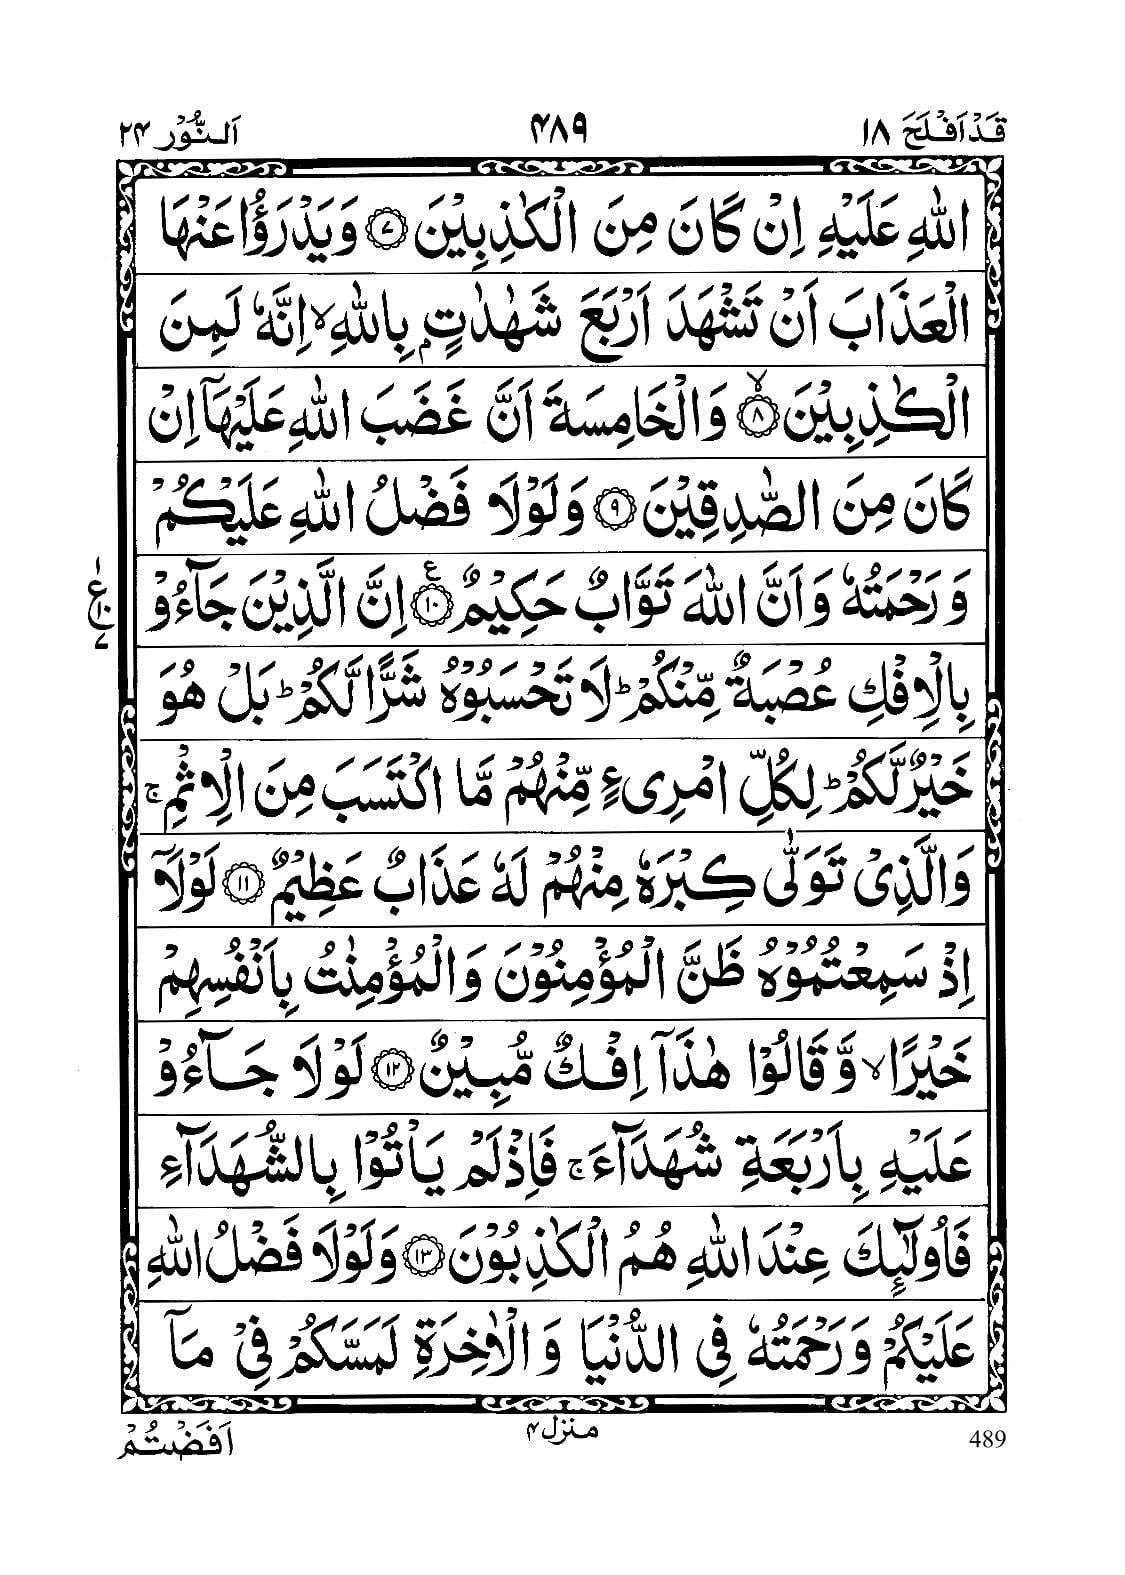 قَدْ اَفْلَحَ ١٨ ٤٨٩ اَلنُّوْر ٢٤
اللّٰهِ عَلَيْهِ اِنْ كَانَ مِنَ الْكٰذِبِيْنَ ۝٧ وَيَدْرَؤُا عَنْهَا
الْعَذَابَ اَنْ تَشْهَدَ اَرْبَعَ شَهٰدٰتٍۭ بِاللّٰهِ ۙ اِنَّهٗ لَمِنَ
الْكٰذِبِيْنَ ۝٨ۙ وَالْخَامِسَةَ اَنَّ غَضَبَ اللّٰهِ عَلَيْهَاۤ اِنْ
كَانَ مِنَ الصّٰدِقِيْنَ ۝٩ وَلَوْلَا فَضْلُ اللّٰهِ عَلَيْكُمْ
وَرَحْمَتُهٗ وَاَنَّ اللّٰهَ تَوَّابٌ حَكِيْمٌ ۝١٠ ع اِنَّ الَّذِيْنَ جَآءُوْ
١ ع ١٠ ٧
بِالْاِفْكِ عُصْبَةٌ مِّنْكُمْ ؕ لَا تَحْسَبُوْهُ شَرًّا لَّكُمْ ؕ بَلْ هُوَ
خَيْرٌ لَّكُمْ ؕ لِكُلِّ امْرِیءٍ مِّنْهُمْ مَّا اكْتَسَبَ مِنَ الْاِثْمِ ۚ
وَالَّذِیْ تَوَلّٰى كِبْرَهٗ مِنْهُمْ لَهٗ عَذَابٌ عَظِيْمٌ ۝١١ لَوْلَاۤ
اِذْ سَمِعْتُمُوْهُ ظَنَّ الْمُؤْمِنُوْنَ وَالْمُؤْمِنٰتُ بِاَنْفُسِهِمْ
خَيْرًا ۙ وَّقَالُوْا هٰذَاۤ اِفْكٌ مُّبِيْنٌ ۝١٢ لَوْلَا جَآءُوْ
عَلَيْهِ بِاَرْبَعَةِ شُهَدَآءَ ۚ فَاِذْ لَمْ يَاْتُوْا بِالشُّهَدَآءِ
فَاُولٰٓئِكَ عِنْدَ اللّٰهِ هُمُ الْكٰذِبُوْنَ ۝١٣ وَلَوْلَا فَضْلُ اللّٰهِ
عَلَيْكُمْ وَرَحْمَتُهٗ فِی الدُّنْيَا وَالْاٰخِرَةِ لَمَسَّكُمْ فِیْ مَاۤ
489 منزل ٤ اَفَضْتُمْ